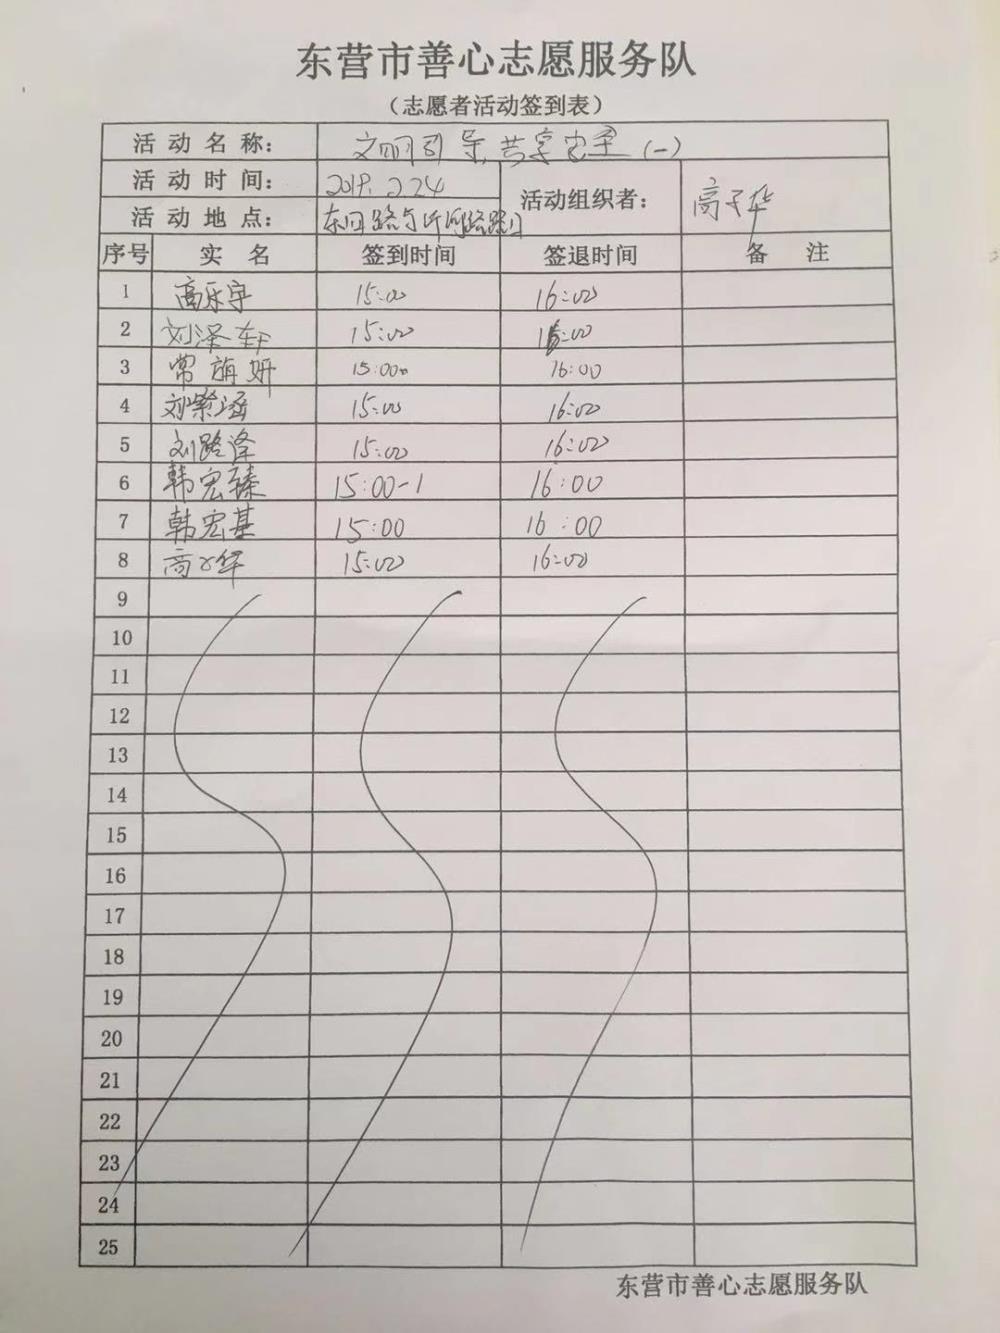 东营市善心志愿服务队
（志愿者活动签到表）
活动名称： 文明引导,共享安全（一）
活动时间： 2019.2.24 活动组织者： 高子华
活动地点： 东四路与沂河路路口
序号 实名 签到时间 签退时间 备注
1 高乐宇 15:00 16:00
2 刘泽轩 15:00 16:00
3 常旃妍 15:00 16:00
4 刘紫涵 15:00 16:00
5 刘路泽 15:00 16:00
6 韩宏臻 15:00-1 16:00
7 韩宏基 15:00 16:00
8 高子华 15:00 16:00
9
10
11
12
13
14
15
16
17
18
19
20
21
22
23
24
25
东营市善心志愿服务队